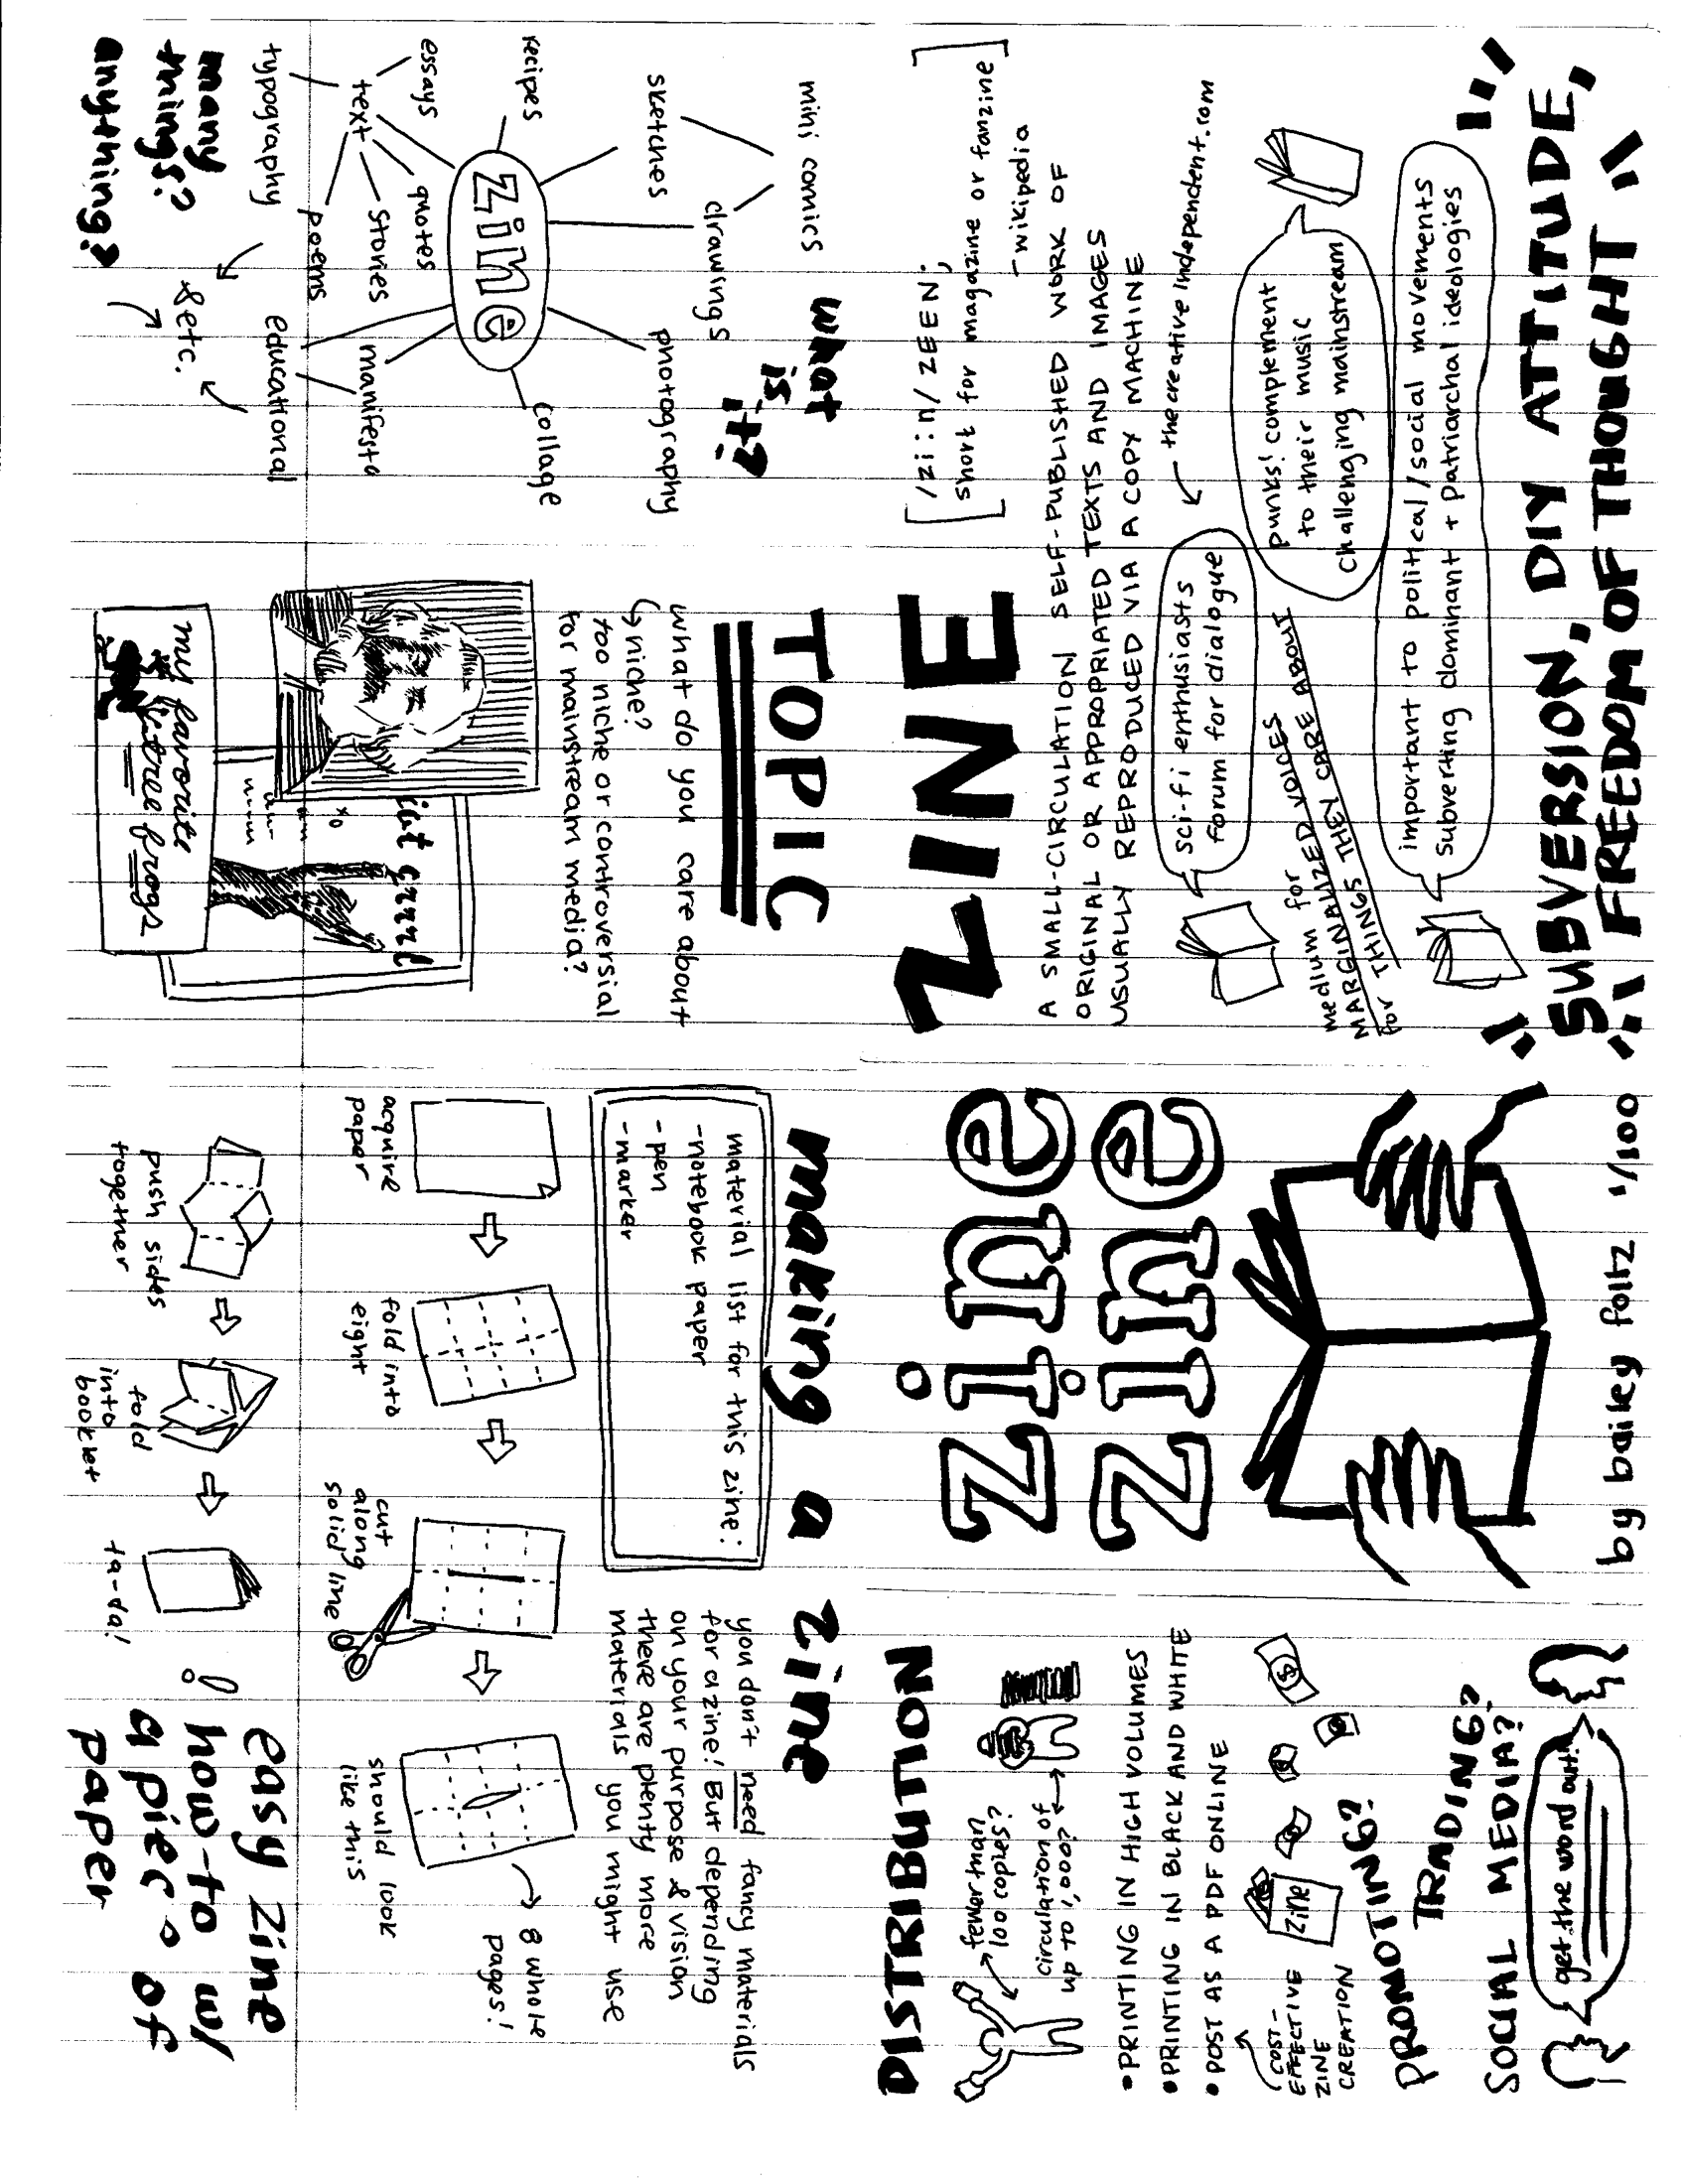 zine
zine
by bailey foltz 1/100
ZINE
[/ziːn/ ZEEN;
short for magazine or fanzine]
- wikipedia
A SMALL-CIRCULATION SELF-PUBLISHED WORK OF
ORIGINAL OR APPROPRIATED TEXTS AND IMAGES
USUALLY REPRODUCED VIA A COPY MACHINE
← thecreativeindependent.com
sci-fi enthusiasts
forum for dialogue
punks! complement
to their music
challenging mainstream
medium for
MARGINALIZED VOICES
for THINGS THEY CARE ABOUT
important to political/social movements
subverting dominant + patriarchal ideologies
SUBVERSION, DIY ATTITUDE,
FREEDOM OF THOUGHT
what
is
it?
mini comics
sketches
drawings
photography
recipes
zine
collage
essays
text
quotes
stories
poems
typography
manifesto
educational
&etc.
many
things?
anything?
TOPIC
what do you care about
↳ niche?
too niche or controversial
for mainstream media?
riot grrrl
xo
my favorite
tree frogs
making a zine
material list for this zine:
-notebook paper
-pen
-marker
you don't need fancy materials
for a zine! But depending
on your purpose & vision
there are plenty more
materials you might use
acquire
paper
fold into
eight
cut
along
solid line
should look
like this
8 whole
pages!
push sides
together
fold
into
booklet
ta-da!
easy zine
how-to w/
a piece of
paper
DISTRIBUTION
fewer than
100 copies?
circulation of
up to 1,000?
• PRINTING IN HIGH VOLUMES
• PRINTING IN BLACK AND WHITE
• POST AS A PDF ONLINE
COST-
EFFECTIVE
ZINE
CREATION
$
zine
PROMOTING?
TRADING?
SOCIAL MEDIA?
get the word out!